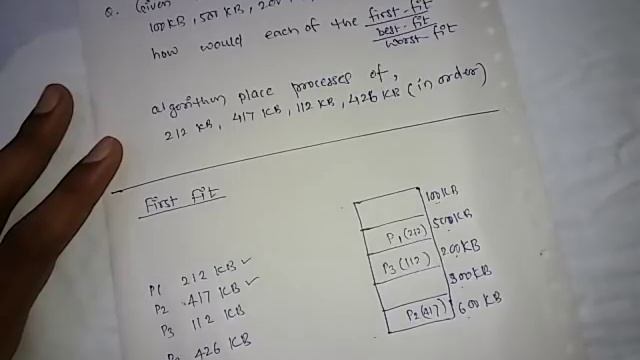 Q. Given
100 KB, 500 KB, 200
how would each of the first-fit
best-fit
worst-fit
algorithm place processes of,
212 KB, 417 KB, 112 KB, 426 KB (in order)
First Fit
P1 212 KB ✓
P2 417 KB ✓
P3 112 KB
426 KB
100KB
P1(212) 500KB
P3(112) 200KB
300KB
P2(417) 600KB